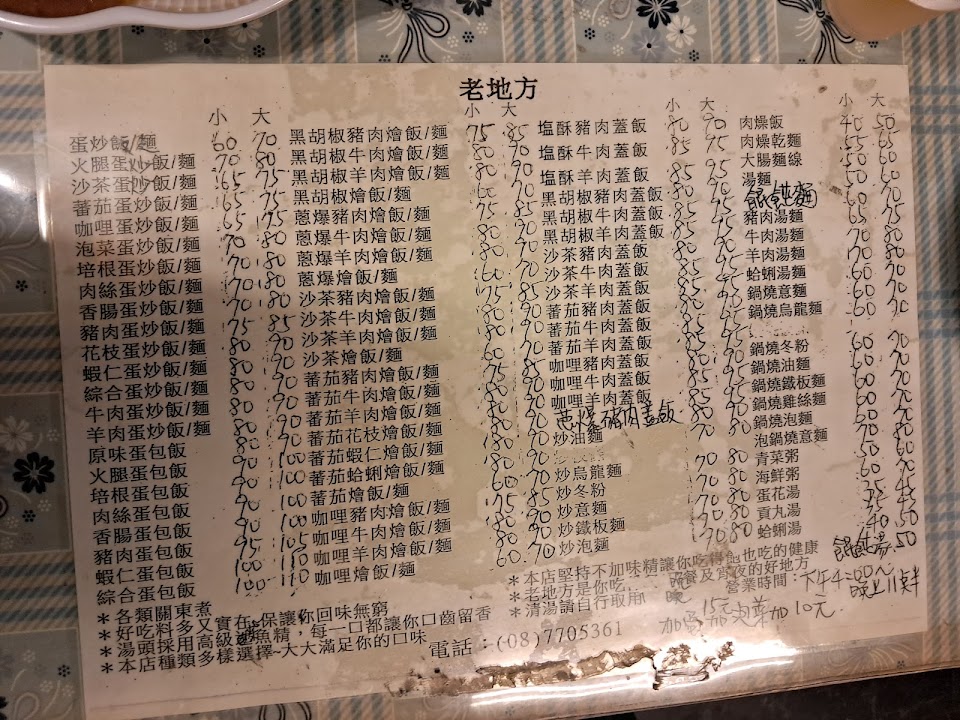 老地方
小 大
蛋炒飯/麵 60 70
火腿蛋炒飯/麵 70 80
沙茶蛋炒飯/麵 65 75
蕃茄蛋炒飯/麵 65 75
咖哩蛋炒飯/麵 65 75
泡菜蛋炒飯/麵 70 80
培根蛋炒飯/麵 70 80
肉絲蛋炒飯/麵 70 80
香腸蛋炒飯/麵 70 80
豬肉蛋炒飯/麵 75 85
花枝蛋炒飯/麵 80 90
蝦仁蛋炒飯/麵 80 90
綜合蛋炒飯/麵 80 90
牛肉蛋炒飯/麵 80 90
羊肉蛋炒飯/麵 80 90
原味蛋包飯 80 90
火腿蛋包飯 90 100
培根蛋包飯 90 100
肉絲蛋包飯 90 100
香腸蛋包飯 90 100
豬肉蛋包飯 95 105
蝦仁蛋包飯 100 110
綜合蛋包飯 100 110
小 大
黑胡椒豬肉燴飯/麵 75 85
黑胡椒牛肉燴飯/麵 80 90
黑胡椒羊肉燴飯/麵 80 90
黑胡椒燴飯/麵 60 70
蔥爆豬肉燴飯/麵 75 85
蔥爆牛肉燴飯/麵 80 90
蔥爆羊肉燴飯/麵 80 90
蔥爆燴飯/麵 60 70
沙茶豬肉燴飯/麵 75 85
沙茶牛肉燴飯/麵 80 90
沙茶羊肉燴飯/麵 80 90
沙茶燴飯/麵 60 70
蕃茄豬肉燴飯/麵 75 85
蕃茄牛肉燴飯/麵 80 90
蕃茄羊肉燴飯/麵 80 90
蕃茄花枝燴飯/麵 80 90
蕃茄蝦仁燴飯/麵 80 90
蕃茄蛤蜊燴飯/麵 80 90
蕃茄燴飯/麵 60 70
咖哩豬肉燴飯/麵 75 85
咖哩牛肉燴飯/麵 80 90
咖哩羊肉燴飯/麵 80 90
咖哩燴飯/麵 60 70
小 大
塩酥豬肉蓋飯 80 90
塩酥牛肉蓋飯 85 95
塩酥羊肉蓋飯 85 95
黑胡椒豬肉蓋飯 80 90
黑胡椒牛肉蓋飯 85 95
黑胡椒羊肉蓋飯 85 95
沙茶豬肉蓋飯 80 90
沙茶牛肉蓋飯 85 95
沙茶羊肉蓋飯 85 95
蕃茄豬肉蓋飯 80 90
蕃茄牛肉蓋飯 85 95
蕃茄羊肉蓋飯 85 95
咖哩豬肉蓋飯 80 90
咖哩牛肉蓋飯 85 95
咖哩羊肉蓋飯 85 95
蔥爆豬肉蓋飯 80 90
炒油麵 70 80
炒烏龍麵 70 80
炒冬粉 70 80
炒意麵 70 80
炒鐵板麵 70 80
炒泡麵 70 80
小 大
肉燥飯 40 50
肉燥乾麵 55 65
大腸麵線 50 60
湯麵 50 60
餛飩麵 60 70
豬肉湯麵 65 75
牛肉湯麵 70 80
羊肉湯麵 70 80
蛤蜊湯麵 60 70
鍋燒意麵 60 70
鍋燒烏龍麵 60 70
鍋燒冬粉 60 70
鍋燒油麵 60 70
鍋燒鐵板麵 60 70
鍋燒雞絲麵 60 70
鍋燒泡麵 60 70
泡鍋燒意麵
青菜粥
海鮮粥 60 70
蛋花湯
貢丸湯
蛤蜊湯 40 50
餛飩湯 50
＊各類關東煮
＊好吃料多又實在,保讓你回味無窮
＊湯頭採用高級 魚精，每一口都讓你口齒留香
＊本店種類多樣選擇-大大滿足你的口味
電話：(08)7705361
＊本店堅持不加味精讓你吃得飽也吃的健康
＊老地方是你吃 晚餐及宵夜的好地方
＊清湯請自行取用
營業時間：下午4:00～晚上11點半
加 15元 加 加10元